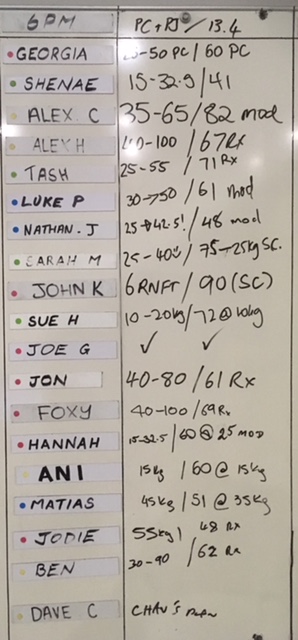 6PM PC + PJ / 13.4
GEORGIA -50 PC / 60 PC
SHENAE 15-32.5 / 41
ALEX C 35-65 / 82 mod
ALEX H 40-100 / 67 Rx
TASH 25-55 / 71 Rx
LUKE P 30->50 / 61 mod
NATHAN.J 25 42.5! / 48 mod
SARAH M 25-40 / 75 25kg SC.
JOHN K 6RNFT / 90 (SC)
SUE H 10-20kg / 72 @ 10kg
JOE G ✓ ✓
JON 40-80 / 61 Rx
FOXY 40-100 / 69 Rx
HANNAH 15-32.5 / 60 @ 25 MOD
ANI 15kg / 60 @ 15kg
MATIAS 45kg / 51 @ 35kg
JODIE 55kg / 48 Rx
BEN 30-90 / 62 Rx
DAVE C